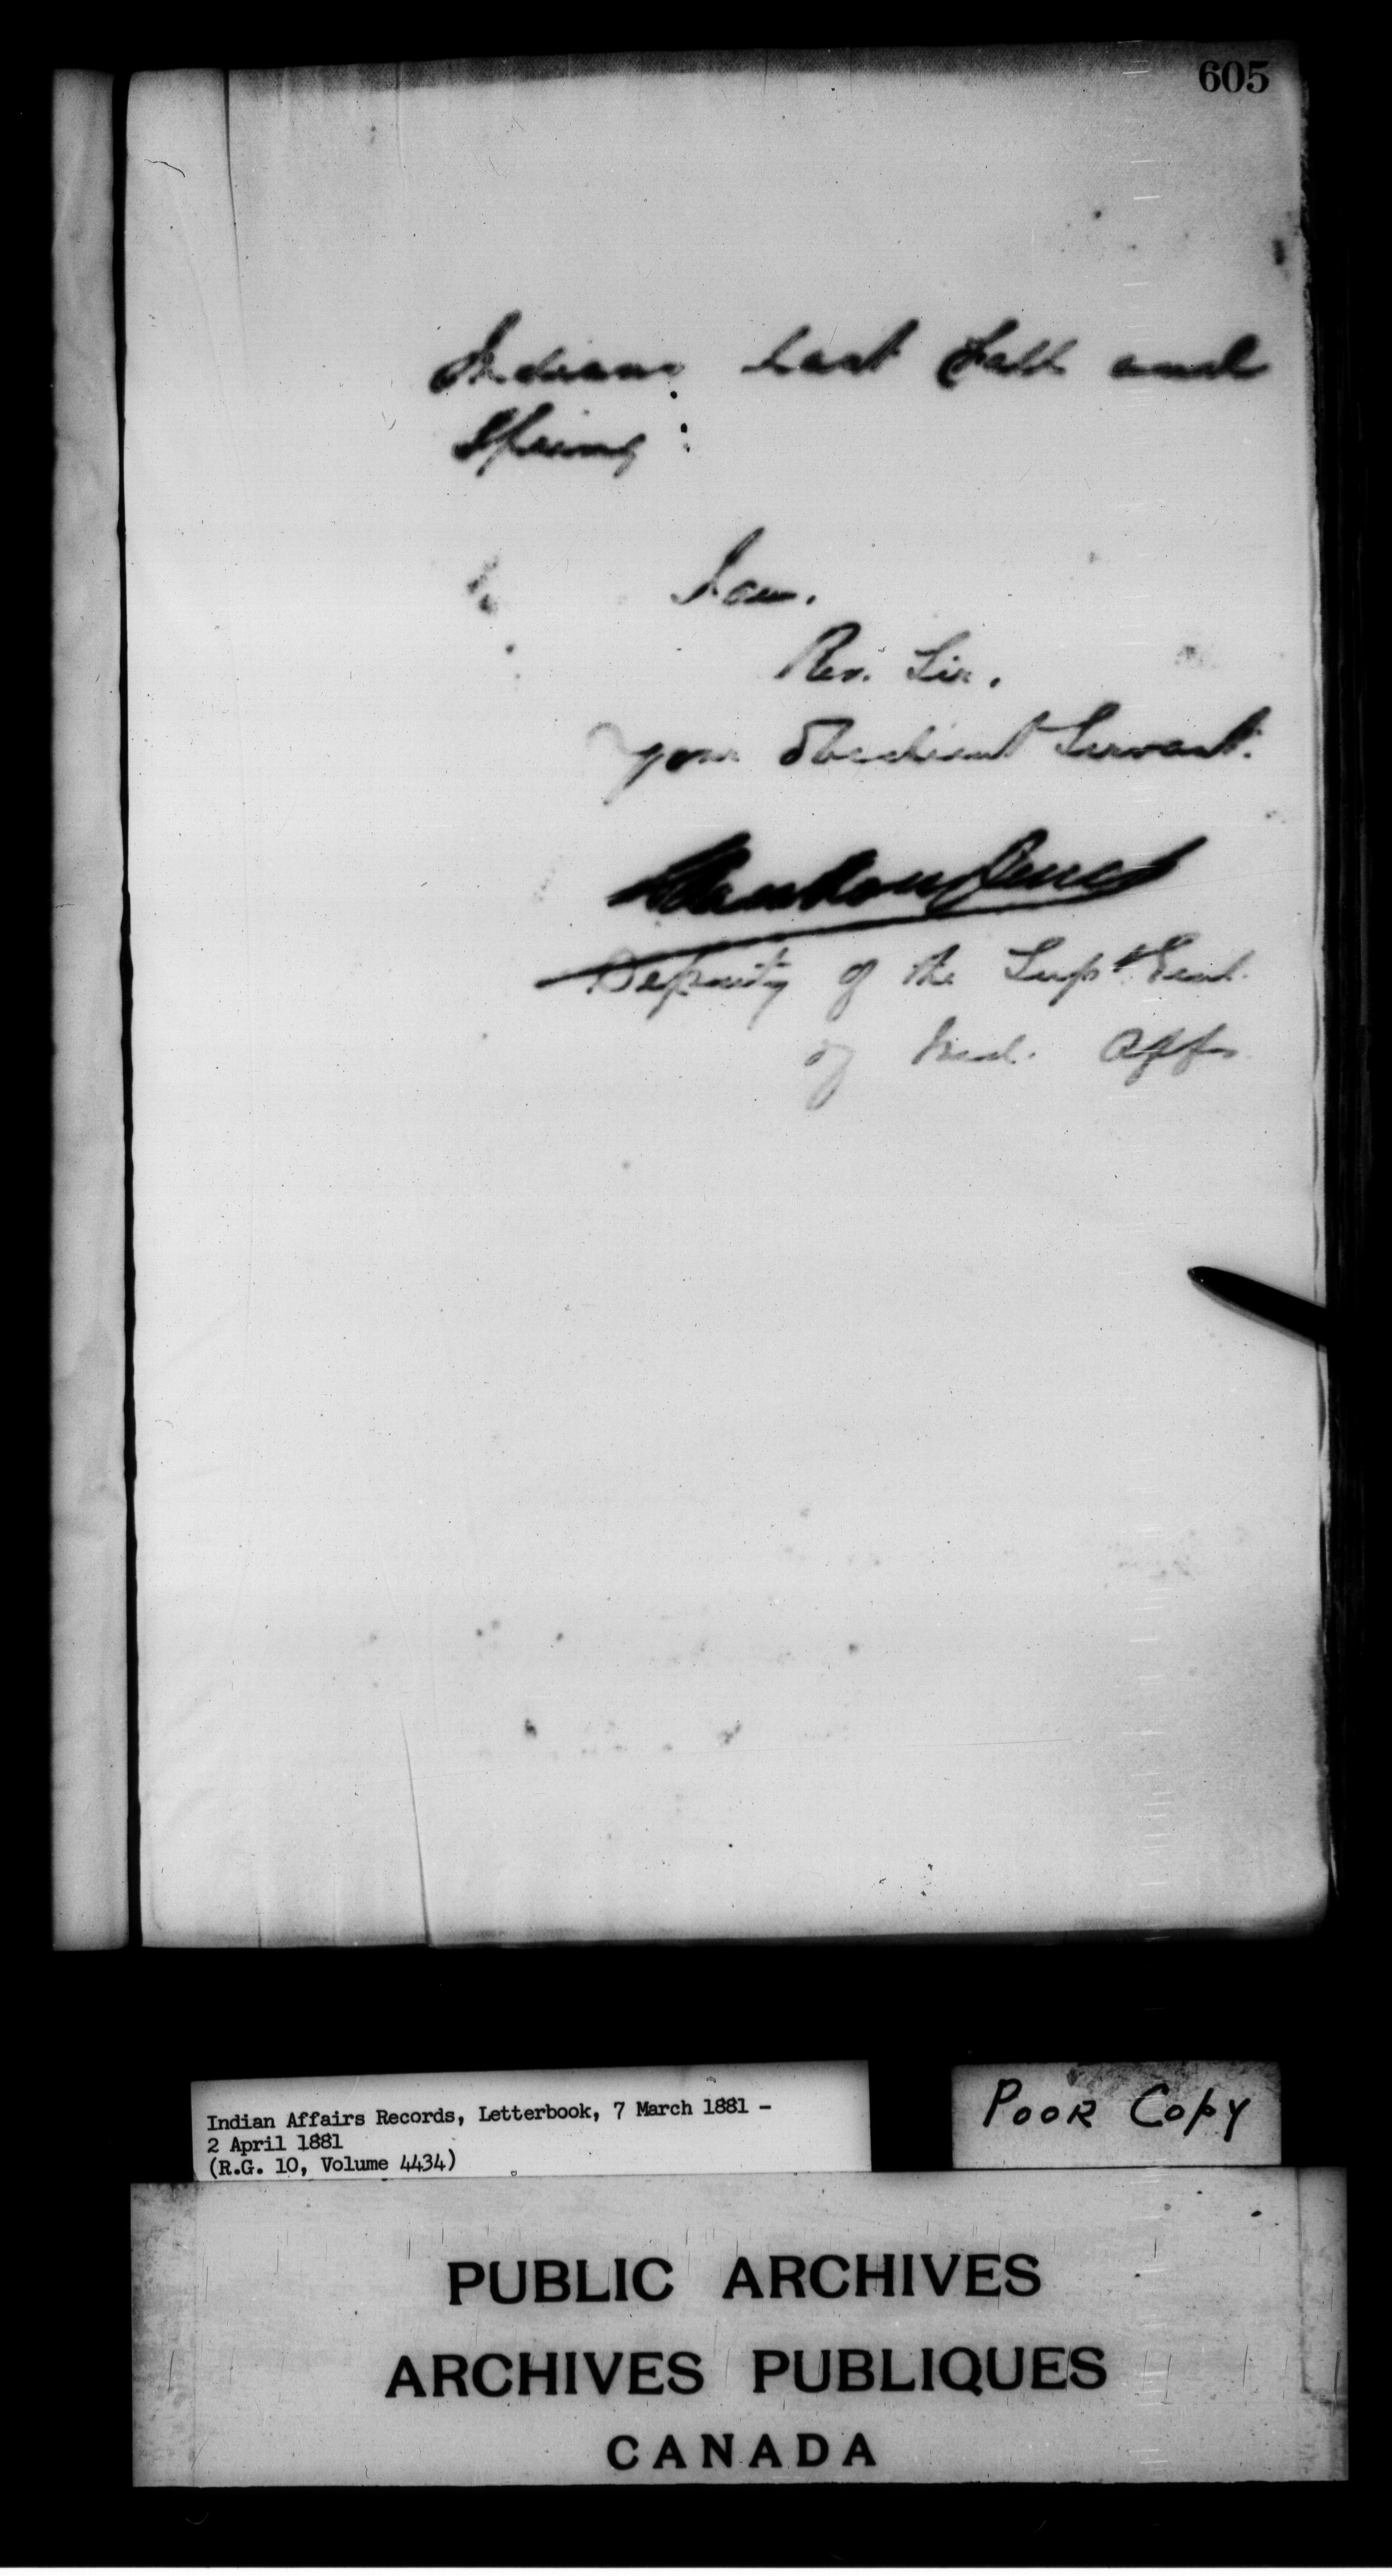 605
Indians last Fall and
Spring:
I am.
Rev. Sir.
your Obedient Servant.
L. Vankoughnet
Deputy of the Supt Genl.
of Ind. Affs
Indian Affairs Records, Letterbook, 7 March 1881 -
2 April 1881
(R.G. 10, Volume 4434)
POOR COPY
PUBLIC ARCHIVES
ARCHIVES PUBLIQUES
CANADA